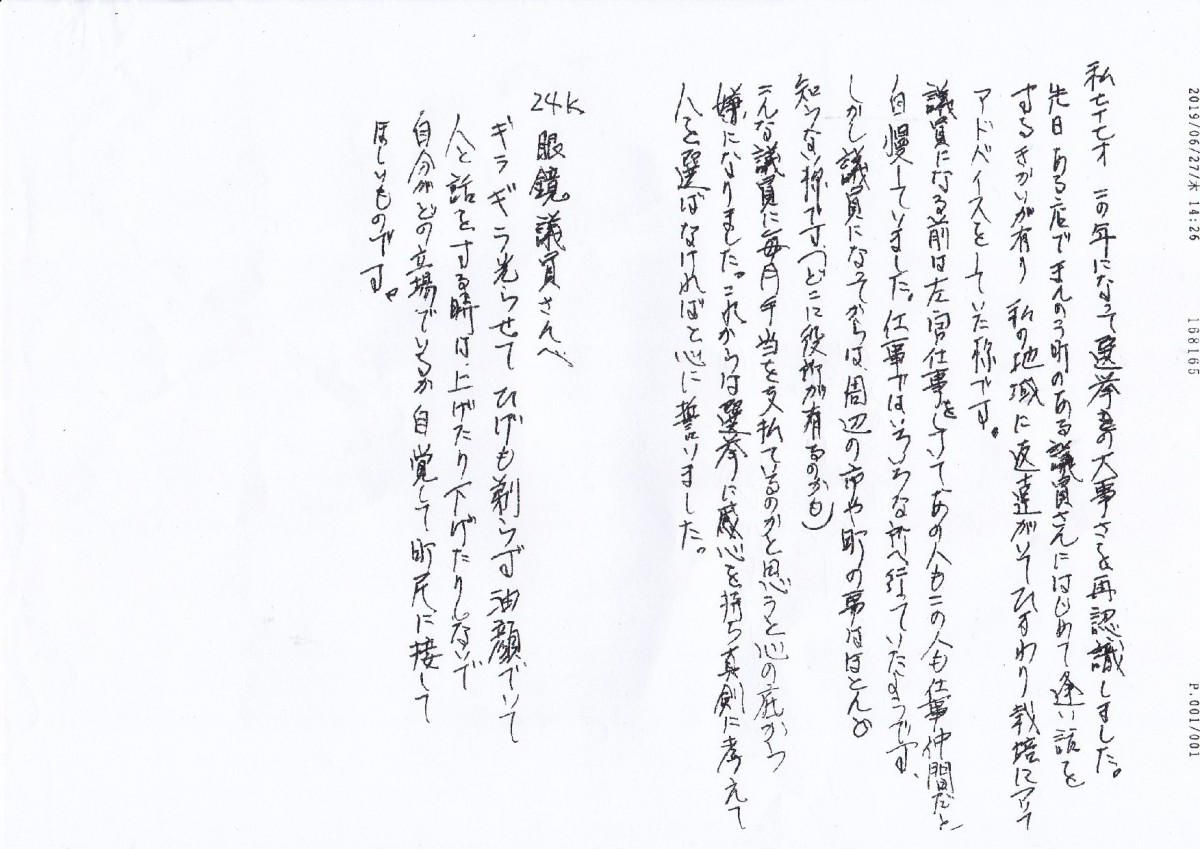 2019/06/27/木 14:26 168165 P.001/001
私七十七才 この年になって選挙の大事さを再認識しました。
先日ある店でまんのう町のある議員さんにはじめて逢い話を
するきかいが有り 私の地域に友達がいてひまわり栽培について
アドバイスをしていた様です。
議員になる前は左官仕事をしていてあの人もこの人も仕事仲間だと
自慢していました。仕事ではいろいろな所へ行っていたようです、
しかし議員になってからは、周辺の市や町の事はほとんど
知らない様です、(どこに役所が有るのかも)
こんな議員に毎月手当を支払ているのかと思うと心の底から
嫌になりました。これからは選挙に感心を持ち真剣に考えて
人を選ばなければと心に誓いました。
24K 眼鏡議員さんへ
ギラギラ光らせて ひげも剃らず油顔でいて
人と話をする時は、上げたり下げたりしないで
自分がどの立場でいるか自覚して町民に接して
ほしいものです。